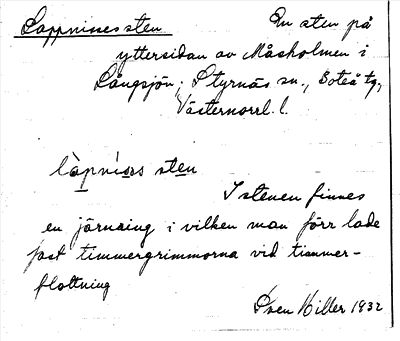 Lappnisses sten En sten på
yttersidan av Måsholmen i
Långsjön; Styrnäs sn., Boteå tg,
Västernorrl. l.
sten
I stenen finnes
en järnring i vilken man förr lade
fast timmergrimmorna vid timmer-
flottning
Sven Hiller 1932